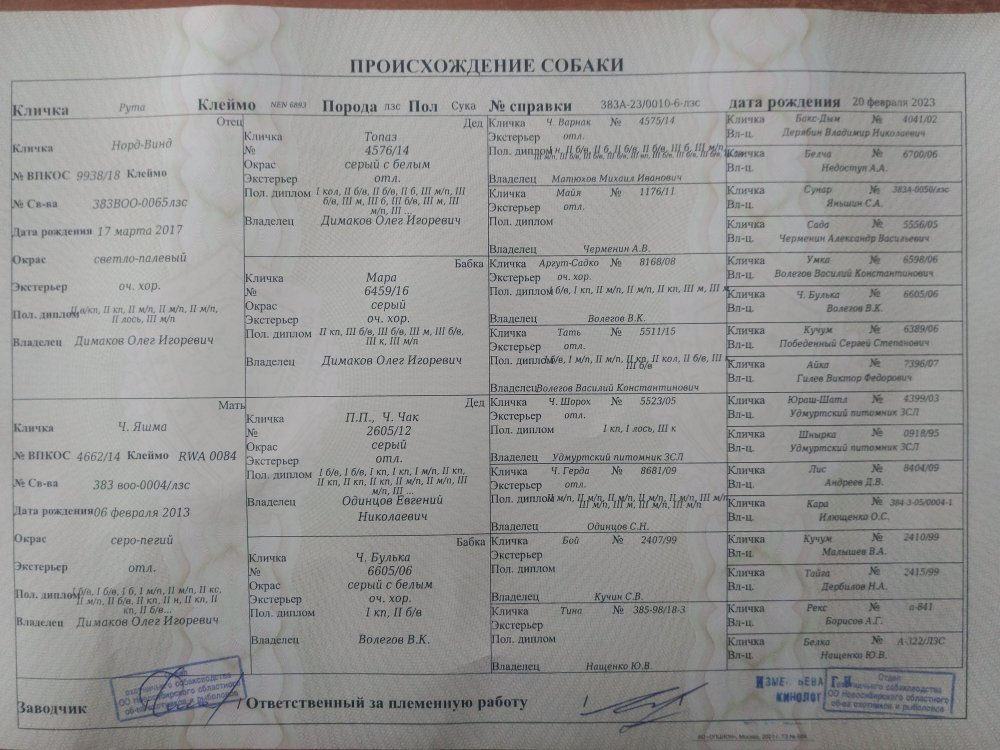 ПРОИСХОЖДЕНИЕ СОБАКИ
Кличка Рута Клеймо NEN 6893 Порода лзс Пол Сука № справки 383А-23/0010-6-лзс дата рождения 20 февраля 2023
Отец
Кличка Норд-Винд
№ ВПКОС 9938/18 Клеймо
№ Св-ва 383ВОО-0065лзс
Дата рождения 17 марта 2017
Окрас светло-палевый
Экстерьер оч. хор.
Пол. диплом II в/кп, II кп, II м/п, II м/п, II м/п,
II лось, III м/п
Владелец Димаков Олег Игоревич
Мать
Кличка Ч. Яшма
№ ВПКОС 4662/14 Клеймо RWA 0084
№ Св-ва 383 воо-0004/лзс
Дата рождения 06 февраля 2013
Окрас серо-пегий
Экстерьер отл.
Пол. диплом I б/в, I б/в, I б, I м/п, II м/п, II кс,
II м/п, II б/в, II кп, II н, II кп, II
кп, II б/в...
Владелец Димаков Олег Игоревич
Дед
Кличка Топаз
№ 4576/14
Окрас серый с белым
Экстерьер отл.
Пол. диплом I кол, II б/в, II б/в, II б, III м/п, III
б/в, III м, III б, III б/в, III м, III
м/п, III ...
Владелец Димаков Олег Игоревич
Бабка
Кличка Мара
№ 6459/16
Окрас серый
Экстерьер оч. хор.
Пол. диплом II кп, III б/в, III б/в, III м, III б/в,
III к, III м/п
Владелец Димаков Олег Игоревич
Дед
Кличка П.П., Ч. Чак
№ 2605/12
Окрас серый
Экстерьер отл.
Пол. диплом I б/в, I б/в, I кп, I кп, I м/п, II кп,
II кп, II кп, II кп, II м/п, II м/п, III
м/п, III ...
Владелец Одинцов Евгений
Николаевич
Бабка
Кличка Ч. Булька
№ 6605/06
Окрас серый с белым
Экстерьер оч. хор.
Пол. диплом I кп, II б/в
Владелец Волегов В.К.
Кличка Ч. Варнак № 4575/14
Экстерьер отл.
Пол. диплом
Владелец Матюхов Михаил Иванович
Кличка Майя № 1176/11
Экстерьер отл.
Пол. диплом
Владелец Черменин А.В.
Кличка Аргут-Садко № 8168/08
Экстерьер оч. хор.
Пол. диплом I б/в, I кп, II м/п, II м/п, II кп, III м, III м
Владелец Волегов В.К.
Кличка Тать № 5511/15
Экстерьер отл.
Пол. диплом I б/в, I м/п, II м/п, II кр, II кол, II б/в, III к,
III б/в
Владелец Волегов Василий Константинович
Кличка Ч. Шорох № 5523/05
Экстерьер отл.
Пол. диплом I кп, I лось, III к
Владелец Удмуртский питомник ЗСЛ
Кличка Ч. Герда № 8681/09
Экстерьер отл.
Пол. диплом II м/п, II м/п, II м/п, II м/п, II м/п, III м/п,
III м/п, III м, III м/п, III м/п
Владелец Одинцов С.Н.
Кличка Бой № 2407/99
Экстерьер
Пол. диплом
Владелец Кучин С.В.
Кличка Тина № 385-98/18-3
Экстерьер
Пол. диплом
Владелец Нащенко Ю.В.
Кличка Бакс-Дым № 4041/02
Вл-ц. Дерябин Владимир Николаевич
Кличка Белча № 6700/06
Вл-ц. Недоступ А.А.
Кличка Сунар № 383А-0050/лзс
Вл-ц. Яньшин С.А.
Кличка Сада № 5556/05
Вл-ц. Черменин Александр Васильевич
Кличка Умка № 6598/06
Вл-ц. Волегов Василий Константинович
Кличка Ч. Булька № 6605/06
Вл-ц. Волегов В.К.
Кличка Кучум № 6389/06
Вл-ц. Победенный Сергей Степанович
Кличка Айка № 7396/07
Вл-ц. Гилев Виктор Федорович
Кличка Юраш-Шатл № 4399/03
Вл-ц. Удмуртский питомник ЗСЛ
Кличка Шнырка № 0918/95
Вл-ц. Удмуртский питомник ЗСЛ
Кличка Лис № 8404/09
Вл-ц. Андреев Д.В.
Кличка Кара № 384-3-05/0004-1
Вл-ц. Илющенко О.С.
Кличка Кучум № 2410/99
Вл-ц. Малышев В.А.
Кличка Тайга № 2415/99
Вл-ц. Дербилов Н.А.
Кличка Рекс № а-841
Вл-ц. Борисов А.Г.
Кличка Белка № А-322/ЛЗС
Вл-ц. Нащенко Ю.В.
Заводчик
охотничьего собаководства
ОО Новосибирского областного
об-ва охотников и рыболовов
Ответственный за племенную работу
КИНОЛОГ
Отдел
охотничьего собаководства
ОО Новосибирского областного
об-ва охотников и рыболовов